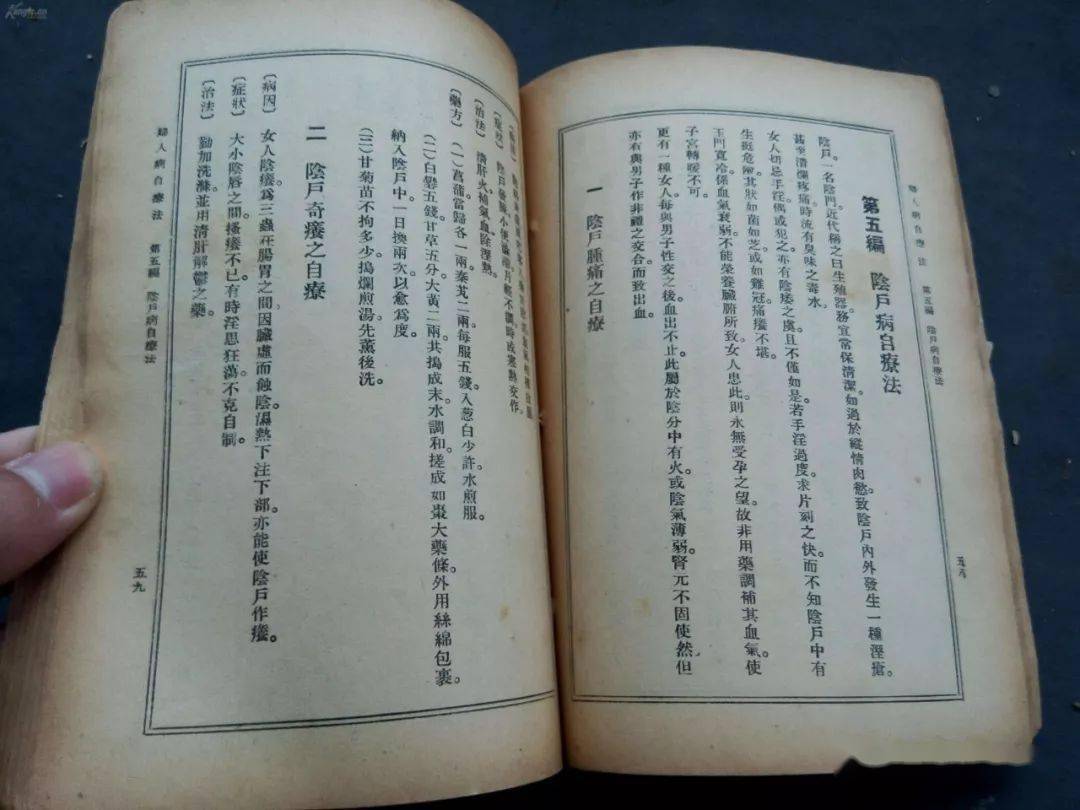 婦人病自療法　第五編　陰戶病自療法
第五編　陰戶病自療法
陰戶。一名陰門。近代稱之曰生殖器。務宜常保清潔。如過於縱情肉慾。致陰戶內外發生一種溼瘡。
甚至潰爛疼痛。時流有臭味之毒水。
女人切忌手淫。偶或犯之。亦有陰痿之虞。且不僅如是。若手淫過度。求片刻之快。而不知陰戶中有
生挺危險。其狀如菌如芝。或如雞冠。痛癢不堪。
玉門寬冷。係血氣衰弱。不能榮養臟腑所致。女人患此。則永無受孕之望。故非用藥調補其血氣。使
子宮轉暖不可。
更有一種女人。每與男子性交之後。血出不止。此屬於陰分中有火。或陰氣薄弱。腎兀不固使然。但
亦有與男子作非禮之交合。而致出血。
一　陰戶腫痛之自療
五八
〔症狀〕　陰戶腫痛。小便淋瀝。月經不調。時成寒熱交作。
〔治法〕　清肝火。補氣血。除溼熱。
〔藥方〕　(一)菖蒲當歸各一兩。秦艽二兩。每服五錢。入葱白少許。水煎服。
(二)白礬五錢。甘草五分。大黃二兩。共搗成末。水調和。搓成如棗大藥條。外用絲綿包裹。
納入陰戶中。一日換兩次。以愈爲度。
(三)甘菊苗不拘多少。搗爛煎湯。先薰後洗。
二　陰戶奇癢之自療
〔病因〕　女人陰癢。爲三蟲在腸胃之間。因臟虛而蝕。陰濕熱下注下部。亦能使陰戶作癢。
〔症狀〕　大小陰唇之間。搔癢不已。有時淫思狂蕩。不克自制。
〔治法〕　勤加洗滌。並用清肝解鬱之藥。
婦人病自療法　第五編　陰戶病自療法
五九